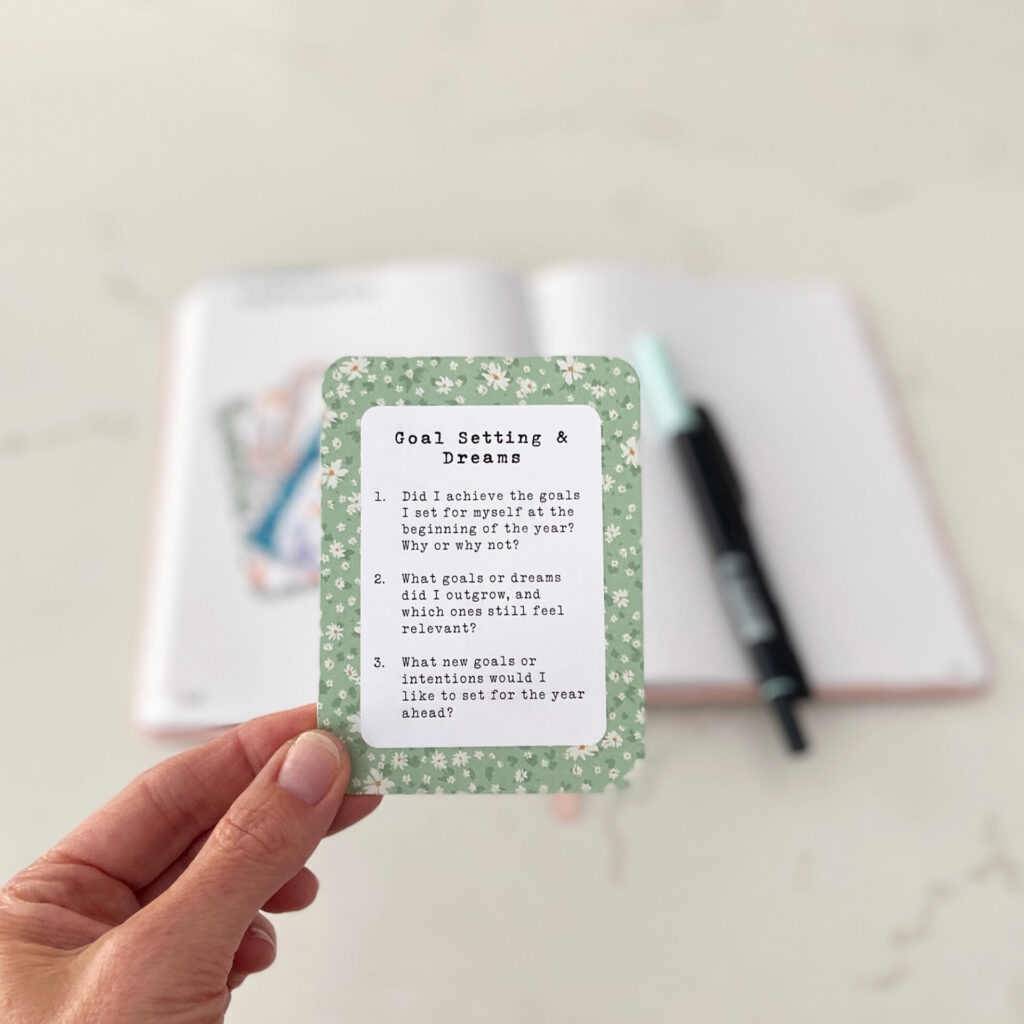 Goal Setting &
Dreams
1. Did I achieve the goals
I set for myself at the
beginning of the year?
Why or why not?
2. What goals or dreams
did I outgrow, and
which ones still feel
relevant?
3. What new goals or
intentions would I
like to set for the year
ahead?